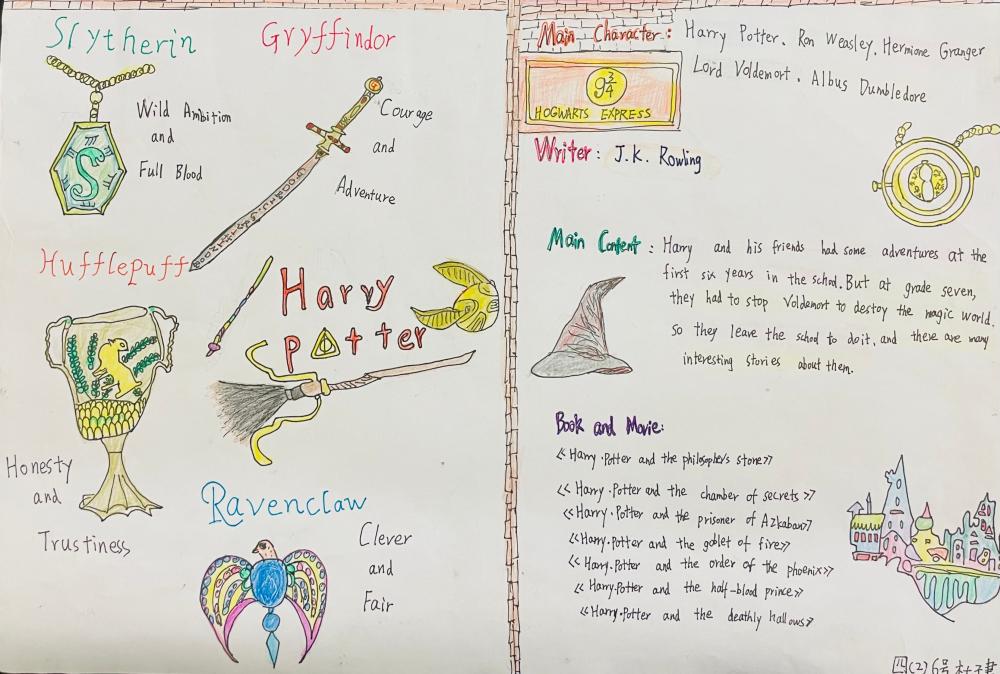 Slytherin
Wild Ambition
and
Full Blood
Gryffindor
Courage
and
Adventure
Hufflepuff
Honesty
and
Trustiness
Harry
Potter
Ravenclaw
Clever
and
Fair
Main Character: Harry Potter、Ron Weasley、Hermione Granger
Lord Voldemort、Albus Dumbledore
9 3/4
HOGWARTS EXPRESS
Writer: J.K. Rowling
Main Content: Harry and his friends had some adventures at the
first six years in the school. But at grade seven,
they had to stop Voldemort to destoy the magic world.
so they leave the school to do it, and there are many
interesting stories about them.
Book and Movie:
《Harry·Potter and the philosopher's stone》
《Harry·Potter and the chamber of secrets》
《Harry·Potter and the prisoner of Azkaban》
《Harry·Potter and the goblet of fire》
《Harry·Potter and the order of the phoenix》
《Harry·Potter and the half-blood prince》
《Harry·Potter and the deathly hallows》
四(2) 6号